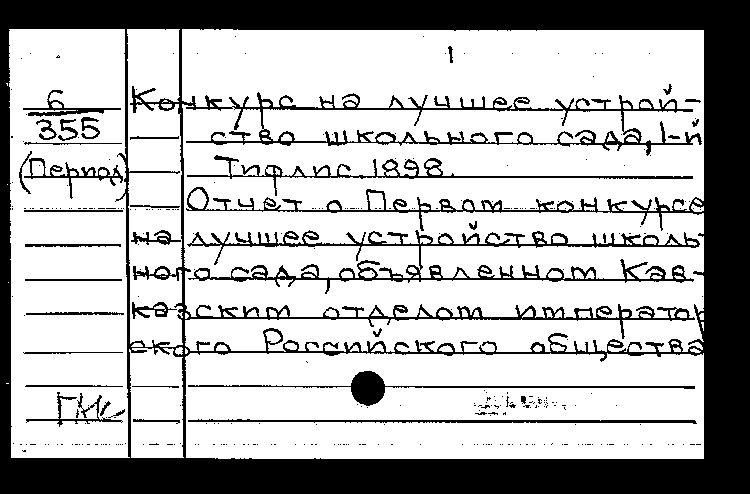 1
6
355
(Период)
Конкурс на лучшее устрой-
ство школьного сада, 1-й
Тифлис. 1898.
Отчет о Первом конкурсе
на лучшее устройство школь-
ного сада, объявленном Кав-
казским отделом император
ского Российского общества